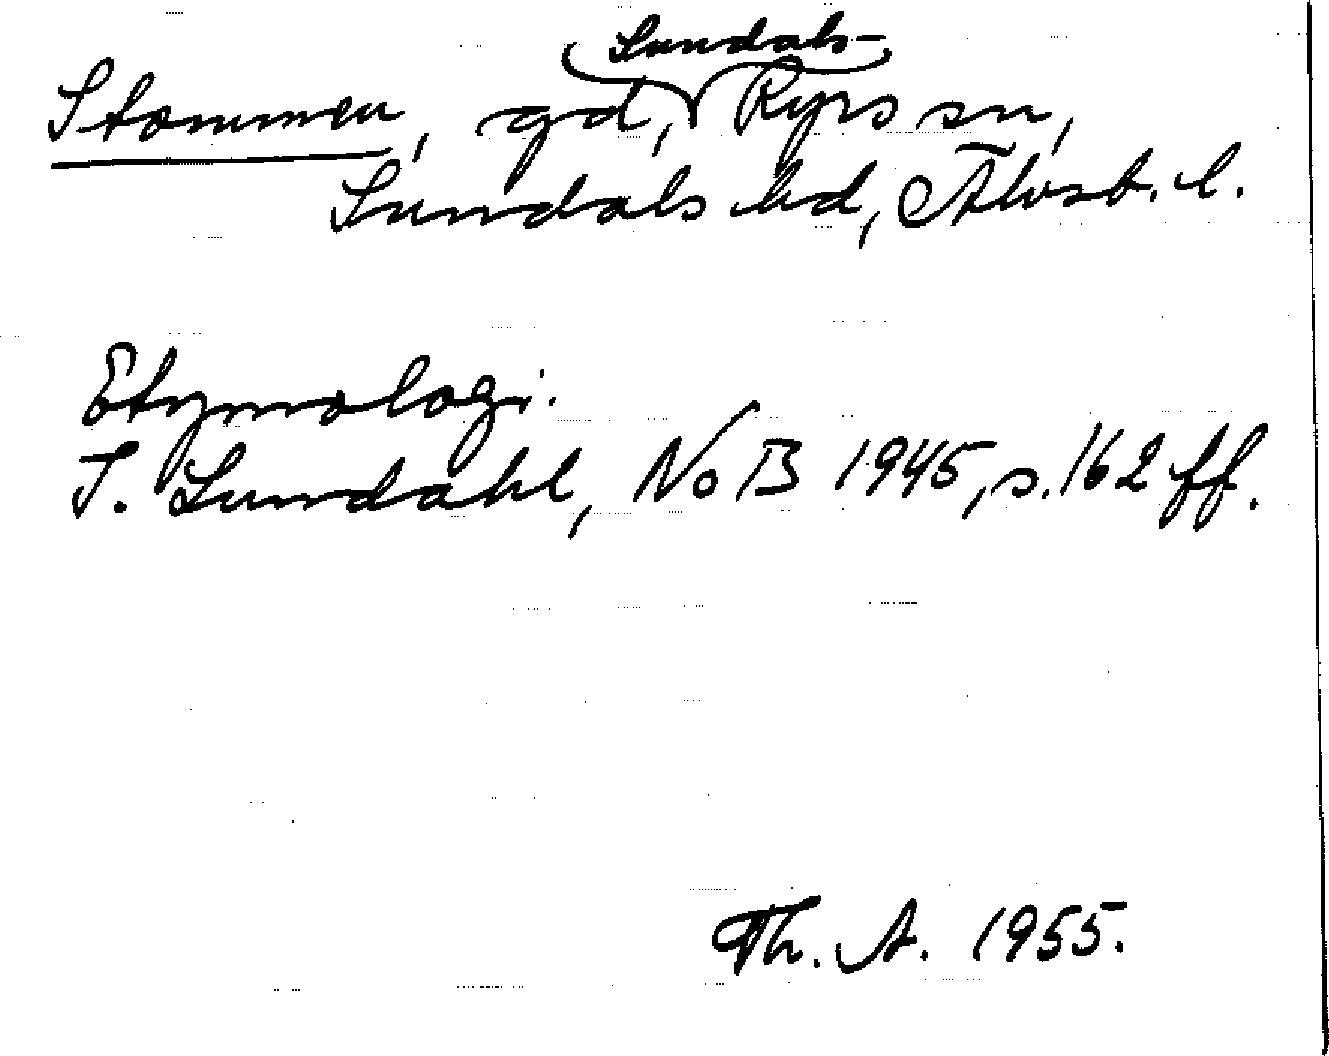 Stommen, gd, Sundals-Ryrs sn,
Sundals hd, Älvsb. l.
Etymologi.
I. Lundahl, NoB 1945, s. 162 ff.
Th. A. 1955.